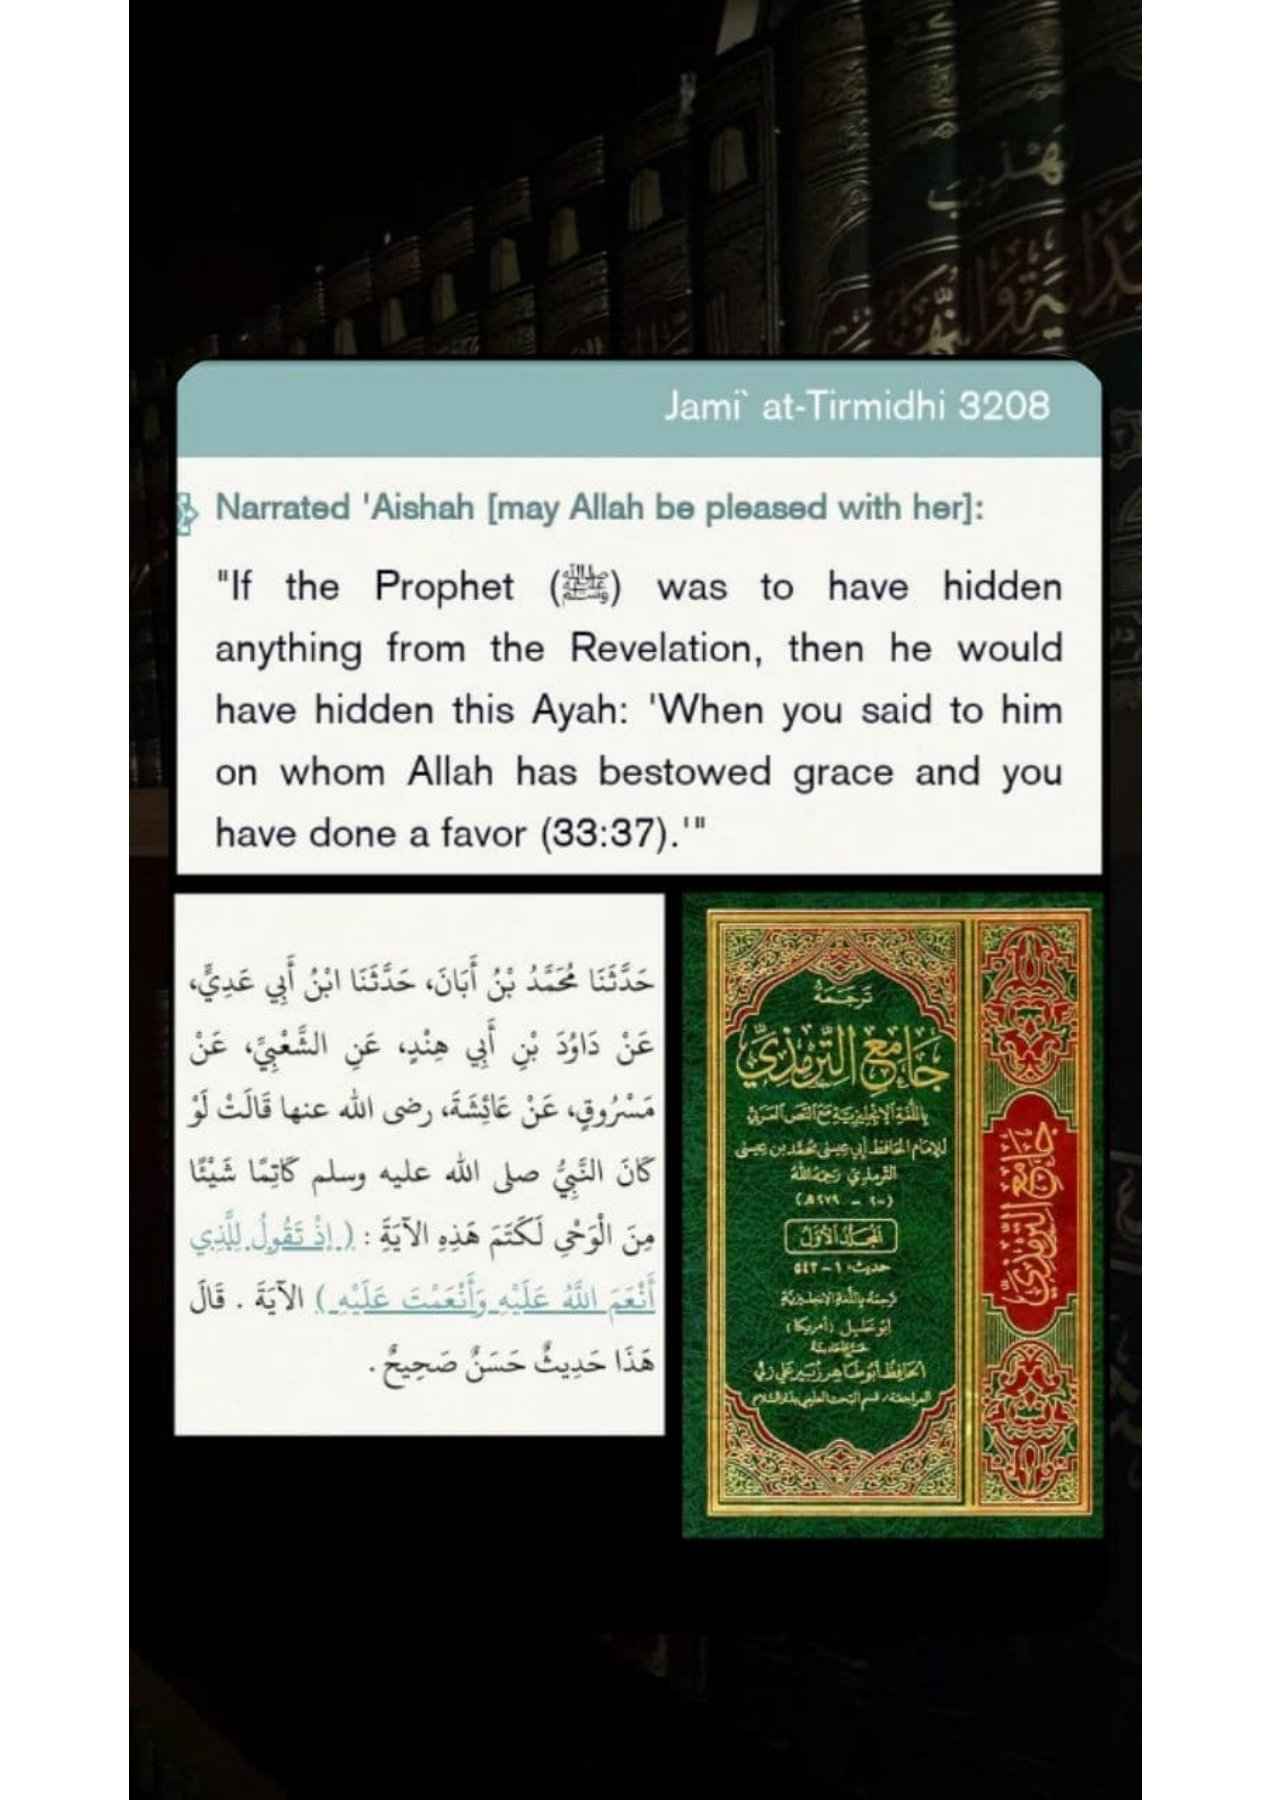 تهذيب
Jami` at-Tirmidhi 3208
Narrated 'Aishah [may Allah be pleased with her]:
"If the Prophet (ﷺ) was to have hidden
anything from the Revelation, then he would
have hidden this Ayah: 'When you said to him
on whom Allah has bestowed grace and you
have done a favor (33:37).'"
حَدَّثَنَا مُحَمَّدُ بْنُ أَبَانَ، حَدَّثَنَا ابْنُ أَبِي عَدِيٍّ،
عَنْ دَاوُدَ بْنِ أَبِي هِنْدٍ، عَنِ الشَّعْبِيِّ، عَنْ
مَسْرُوقٍ، عَنْ عَائِشَةَ، رضى الله عنها قَالَتْ لَوْ
كَانَ النَّبِيُّ صلى الله عليه وسلم كَاتِمًا شَيْئًا
مِنَ الْوَحْىِ لَكَتَمَ هَذِهِ الآيَةَ : ( إِذْ تَقُولُ لِلَّذِي
أَنْعَمَ اللَّهُ عَلَيْهِ وَأَنْعَمْتَ عَلَيْهِ ) الآيَةَ . قَالَ
هَذَا حَدِيثٌ حَسَنٌ صَحِيحٌ .
تَرجَمَة
جَامِع التِّرْمِذِيّ
بِاللُّغَةِ الإِنْجِلِيزِيَّةِ مَعَ النَّصِ العَرَبِيِّ
للإمام الحافظ أبي عيسى محمد بن عيسى
الترمذي رحمه الله
(٢٠٠ - ٢٧٩هـ)
المجلد الأول
حديث: ١ - ٥٤٣
ترجمة باللغة الإنجليزية
أبو خليل (أمريكا)
الحافظ أبو طاهر زبير علي زئي
جامع الترمذي